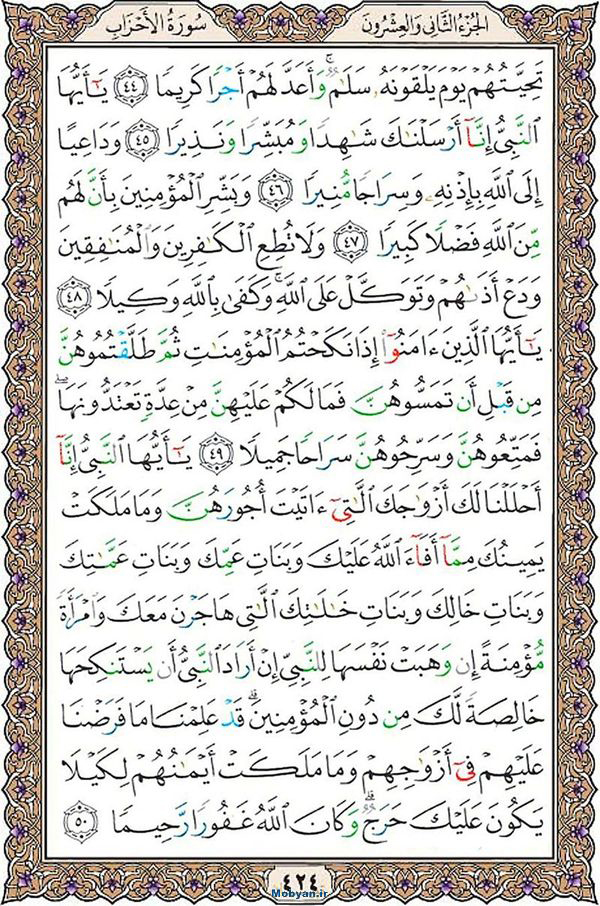 الجُزْءُ الثَّانِي وَالعِشْرُونَ
سُورَةُ الأَحْزَابِ
تَحِيَّتُهُمْ يَوْمَ يَلْقَوْنَهُۥ سَلَٰمٌۚ وَأَعَدَّ لَهُمْ أَجْرًا كَرِيمًا ﴿٤٤﴾ يَٰٓأَيُّهَا
ٱلنَّبِيُّ إِنَّآ أَرْسَلْنَٰكَ شَٰهِدًا وَمُبَشِّرًا وَنَذِيرًا ﴿٤٥﴾ وَدَاعِيًا
إِلَى ٱللَّهِ بِإِذْنِهِۦ وَسِرَاجًا مُّنِيرًا ﴿٤٦﴾ وَبَشِّرِ ٱلْمُؤْمِنِينَ بِأَنَّ لَهُم
مِّنَ ٱللَّهِ فَضْلًا كَبِيرًا ﴿٤٧﴾ وَلَا تُطِعِ ٱلْكَٰفِرِينَ وَٱلْمُنَٰفِقِينَ
وَدَعْ أَذَىٰهُمْ وَتَوَكَّلْ عَلَى ٱللَّهِۚ وَكَفَىٰ بِٱللَّهِ وَكِيلًا ﴿٤٨﴾
يَٰٓأَيُّهَا ٱلَّذِينَ ءَامَنُوٓا۟ إِذَا نَكَحْتُمُ ٱلْمُؤْمِنَٰتِ ثُمَّ طَلَّقْتُمُوهُنَّ
مِن قَبْلِ أَن تَمَسُّوهُنَّ فَمَا لَكُمْ عَلَيْهِنَّ مِنْ عِدَّةٍ تَعْتَدُّونَهَاۖ
فَمَتِّعُوهُنَّ وَسَرِّحُوهُنَّ سَرَاحًا جَمِيلًا ﴿٤٩﴾ يَٰٓأَيُّهَا ٱلنَّبِيُّ إِنَّآ
أَحْلَلْنَا لَكَ أَزْوَٰجَكَ ٱلَّٰتِىٓ ءَاتَيْتَ أُجُورَهُنَّ وَمَا مَلَكَتْ
يَمِينُكَ مِمَّآ أَفَآءَ ٱللَّهُ عَلَيْكَ وَبَنَاتِ عَمِّكَ وَبَنَاتِ عَمَّٰتِكَ
وَبَنَاتِ خَالِكَ وَبَنَاتِ خَٰلَٰتِكَ ٱلَّٰتِى هَاجَرْنَ مَعَكَ وَٱمْرَأَةً
مُّؤْمِنَةً إِن وَهَبَتْ نَفْسَهَا لِلنَّبِيِّ إِنْ أَرَادَ ٱلنَّبِيُّ أَن يَسْتَنكِحَهَا
خَالِصَةً لَّكَ مِن دُونِ ٱلْمُؤْمِنِينَۗ قَدْ عَلِمْنَا مَا فَرَضْنَا
عَلَيْهِمْ فِىٓ أَزْوَٰجِهِمْ وَمَا مَلَكَتْ أَيْمَٰنُهُمْ لِكَيْلَا
يَكُونَ عَلَيْكَ حَرَجٌۗ وَكَانَ ٱللَّهُ غَفُورًا رَّحِيمًا ﴿٥٠﴾
٤٢٤
Mobyan.ir